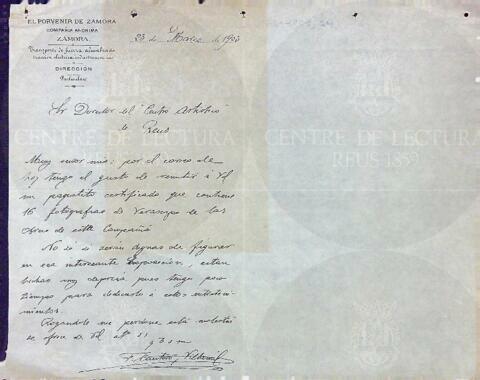 EL PORVENIR DE ZAMORA
COMPAÑIA ANONIMA
ZAMORA
Transporte de fuerza, alumbrado
DIRECCIÓN
Particular
23 de Marzo de
Sr Director del "Centro Artistico"
de Reus
Muy señor mio: por el correo de
hoy tengo el gusto de remitir á Vd
un paquetito certificado que contiene
16 fotografias de de las
obras de esta Compañia
No sé si serán dignas de figurar
en esa interesante Exposición, estan
hechas muy deprisa pues tengo poco
tiempo para dedicarlo á estos entreteni-
mientos.
Rogandole me perdone esta molestia
se ofrece de Vd
CENTRE DE LECTURA
REUS 1859
CENTRE DE LECTURA
REUS 1859